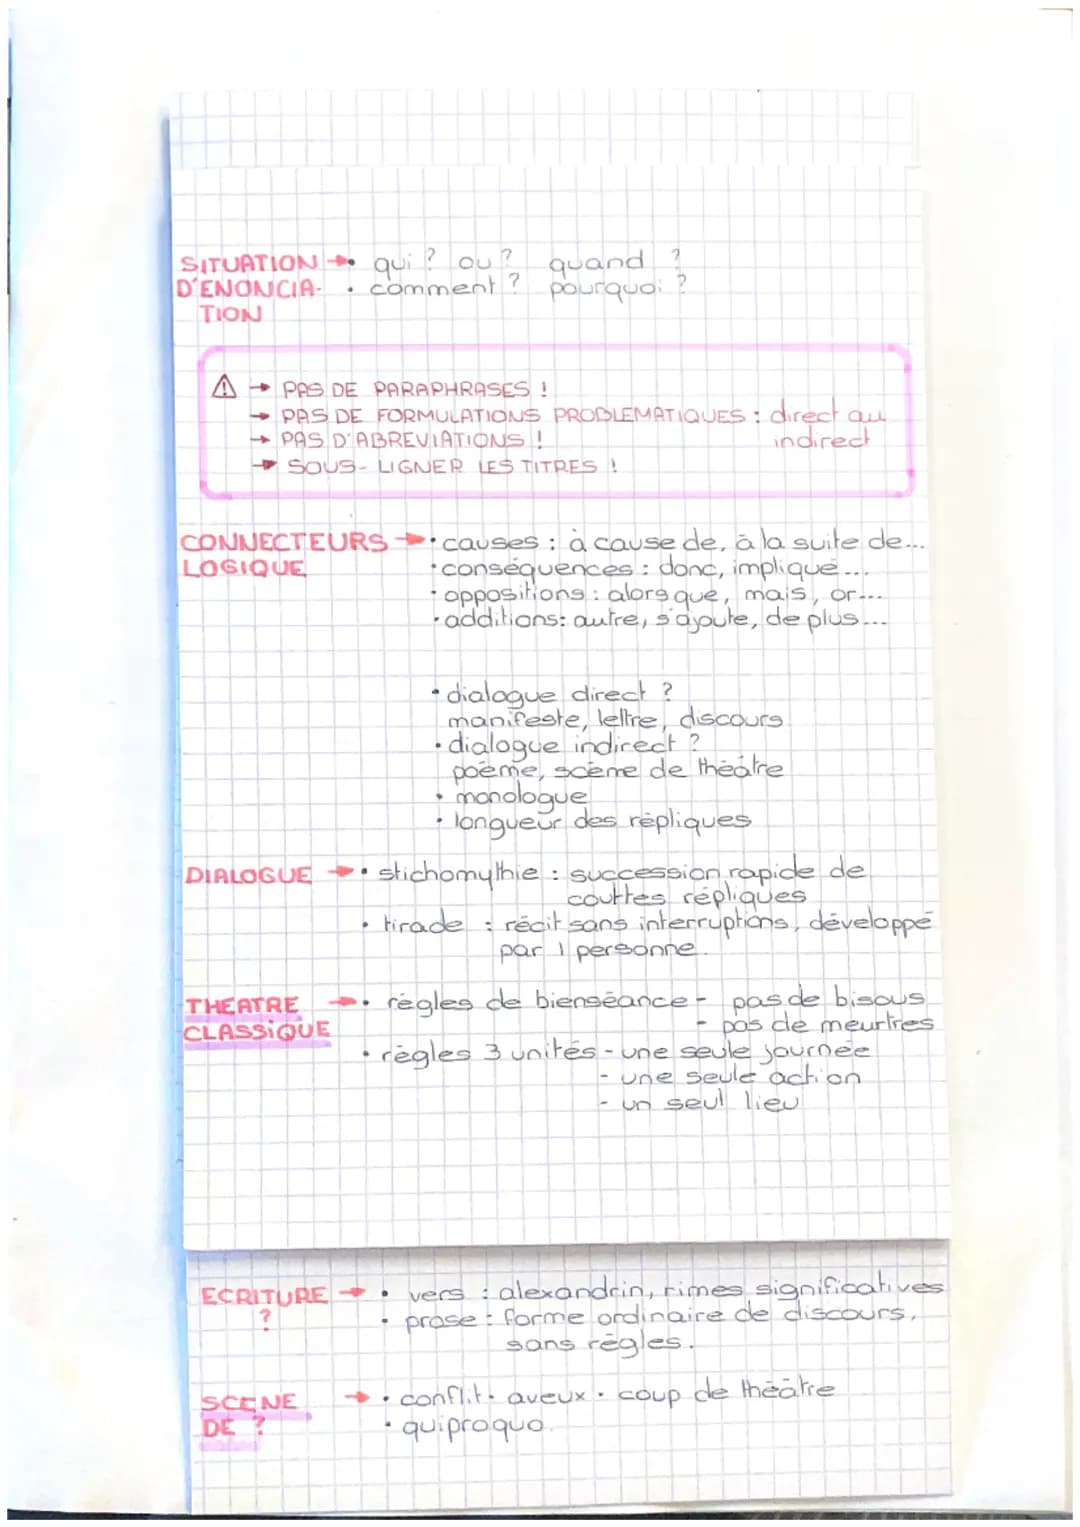 SITUATION → • qui ? ou ? quand ?
D'ENONCIA- • comment ? pourquoi ?
TION
⚠ → PAS DE PARAPHRASES !
→ PAS DE FORMULATIONS PROBLEMATIQUES : direct au
→ PAS D'ABREVIATIONS ! indirect
→ SOUS-LIGNER LES TITRES !
CONNECTEURS → • causes : à cause de, à la suite de...
LOGIQUE • conséquences : donc, implique...
• oppositions : alors que, mais, or...
• additions : autre, s'ajoute, de plus...
• dialogue direct ?
manifeste, lettre, discours
• dialogue indirect ?
poème, scène de théâtre
• monologue
• longueur des répliques
DIALOGUE → • stichomythie : succession rapide de
courtes répliques
• tirade : récit sans interruptions, développé
par 1 personne.
THEATRE → • règles de bienséance - pas de bisous
CLASSIQUE - pas de meurtres
• règles 3 unités - une seule journée
- une seule action
- un seul lieu
ECRITURE → • vers : alexandrin, rimes significatives
? • prose : forme ordinaire de discours,
sans règles.
SCENE → • conflit • aveux • coup de théâtre
DE ? • quiproquo.